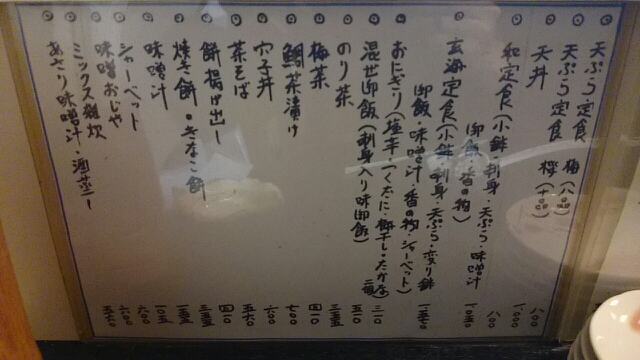 天ぷら定食 梅(八〇〇)
天ぷら定食 桜(一、〇〇〇) 八〇〇
天丼 一、〇〇〇
和定食(小鉢・刺身・天ぷら・味噌汁 八〇〇
御飯・香の物) 一、〇五〇
玄海定食(小鉢・刺身・天ぷら・変り鉢
御飯・味噌汁・香の物・シャーベット) 一、五七〇
おにぎり(塩辛・つくだに・梅干し・たかな) 二ヶ 三一〇
混ぜ御飯(刺身入り味御飯) 五一〇
のり茶 三五五
梅茶 四一〇
鯛茶漬け 七〇〇
穴子丼 六〇〇
茶そば 五六〇
餅揚げ出し 四一〇
焼き餅・きなこ餅 三五五
味噌汁 一五五
シャーベット 一〇五
味噌おじや 六〇〇
ミックス雑炊 六〇〇
あさり味噌汁・酒蒸し 五六〇